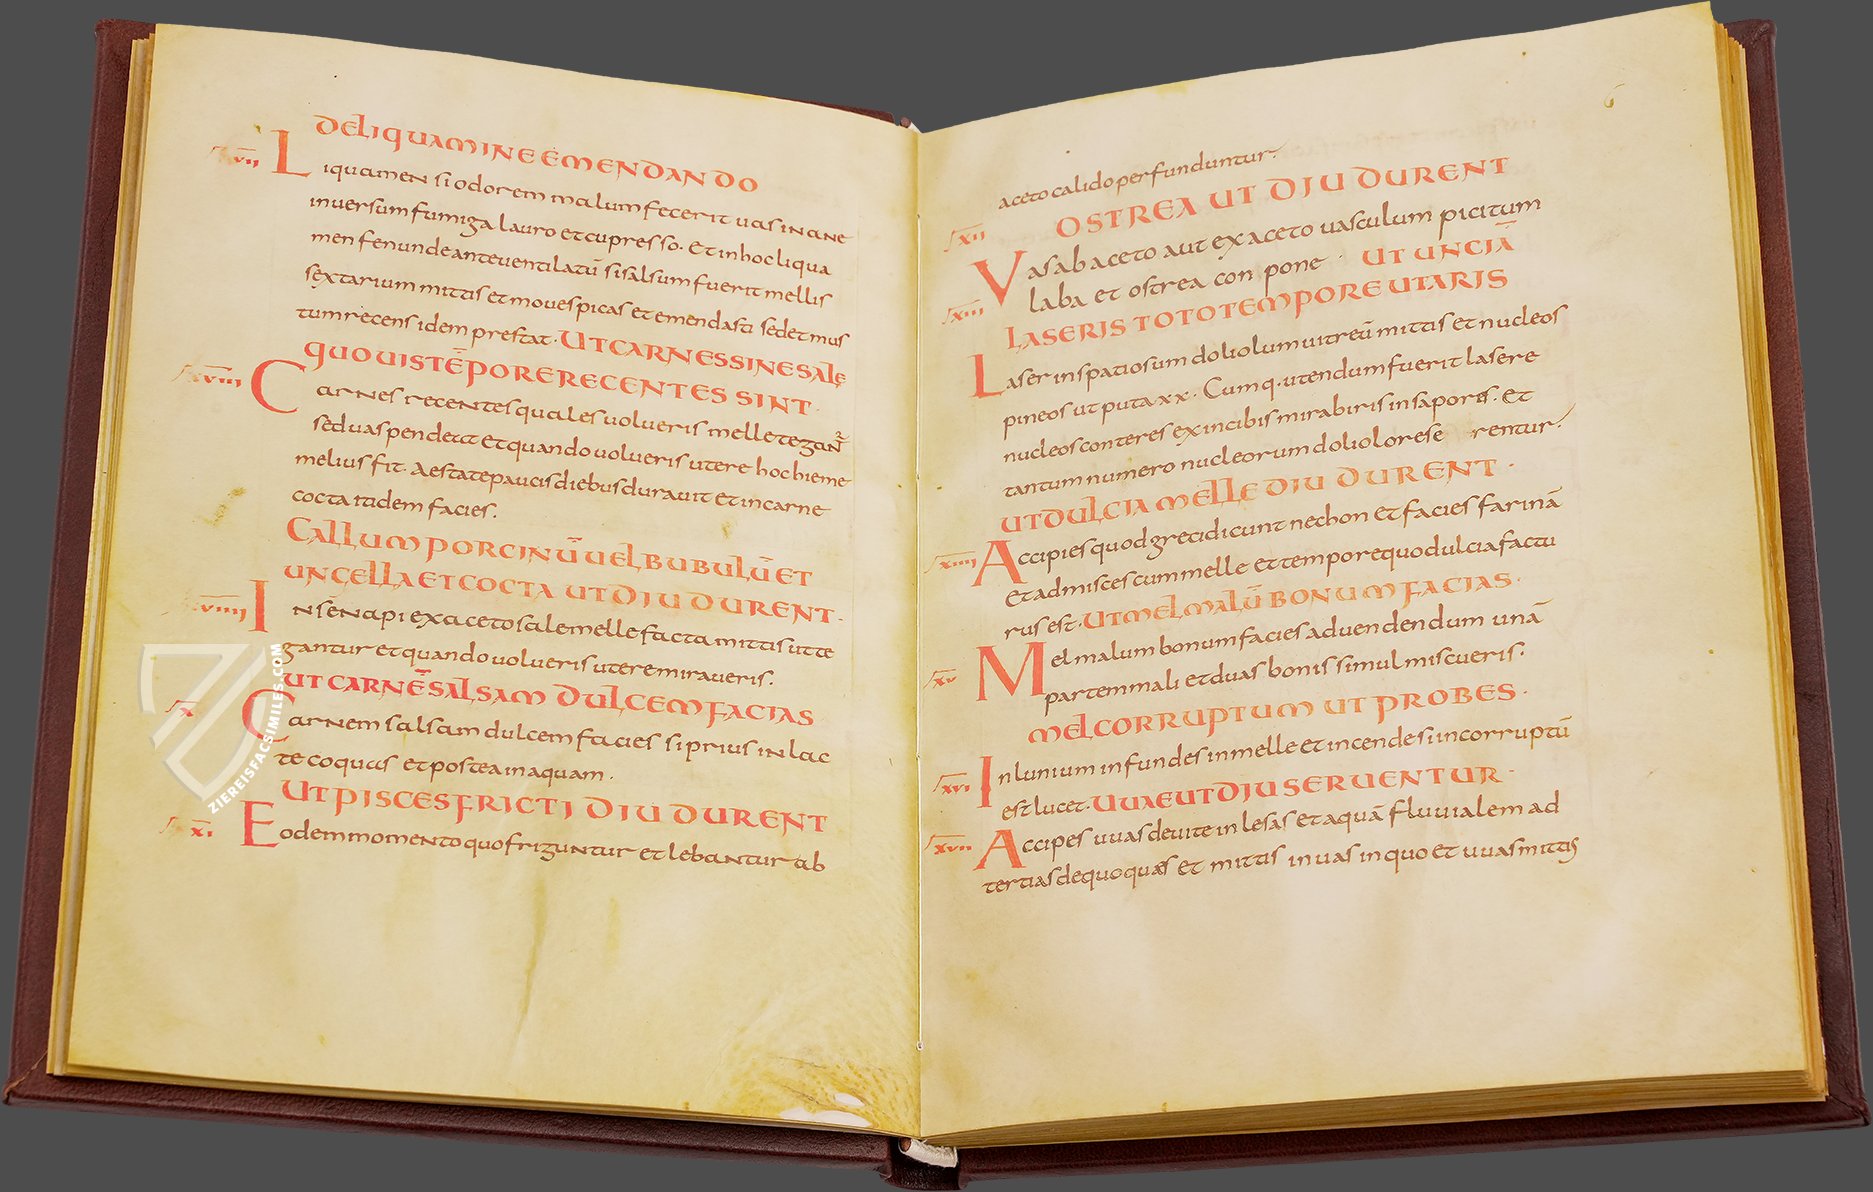 deliquamine emendando
vii Liquamen si odorem malum fecerit uas inane
inuersum fumiga lauro et cupresso. Et in hoc liqua
men fenunde ante uentilatū si salsum fuerit mellis
sextarium mittis et moues picas et emendasti sed et mus
tum recens idem prestat. UT CARNES SINE SALE
QUOUIS TĒPORE RECENTES SINT.
viii Carnes recentes quales uolueris melle tegan
sed uas pendeat et quando uolueris utere hoc hieme
melius fit. Aestate paucis diebus durauit et in carne
cocta itidem facies.
CALLUM PORCINŪ UEL BUBULŪ ET
UNCELLA ET COCTA UT DIU DURENT.
viiii In senapi ex aceto sale melle facta mittis ut te
gantur et quando uolueris utere miraueris.
UT CARNĒ SALSAM DULCEM FACIAS
x Carnem salsam dulcem facies si prius in lac
te coquas et postea in aquam.
UT PISCES FRICTI DIU DURENT
xi Eodem momento quo friguntur et lebantur ab
ZIEREISFACSIMILES.COM
6
aceto calido perfunduntur.
OSTREA UT DIU DURENT
xii Vas ab aceto aut ex aceto uasculum picitum
laba et ostrea con pone. UT UNCIĀ
xiii LASERIS TOTO TEMPORE UTARIS
Laser in spatiosum doliolum uitreū mittis et nucleos
pineos ut puta xx. Cumq. utendum fuerit lasere
nucleos conteres ex in cibis mirabiris in sapores. Et
tantum numero nucleorum doliolo rese rentur.
UT DULCIA MELLE DIU DURENT.
xiiii Accipies quod greci dicunt nechon et facies farinā
et admisces cum melle et tempore quo dulcia factu
rus est. UT MEL MALŪ BONUM FACIAS.
xv Mel malum bonum facies ad uendendum unā
partem mali et duas bonis simul miscueris.
MEL CORRUPTUM UT PROBES.
xvi In lunium infundes in melle et incende si incorruptū
est lucet. UUAE UT DIU SERUENTUR.
xvii Accipes uuas de uite in lesas et aquā fluuialem ad
tertias dequoquas et mittis in uas in quo et uuas mittis